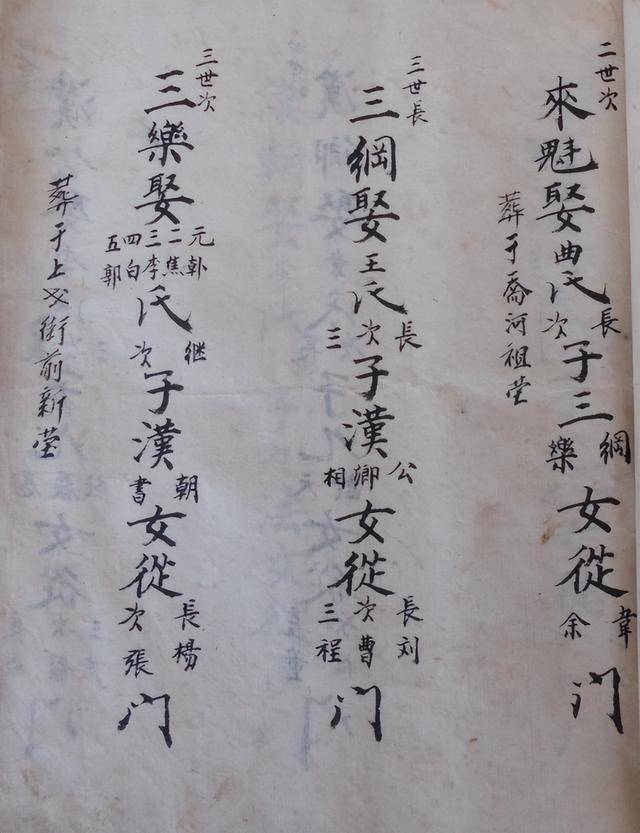 二世次
來魁娶曲氏長次子三綱樂女從韋余门
葬于喬河祖塋
三世長
三綱娶王氏長次三子漢公卿相女從長刘次曹三程门
三世次
三樂娶元卦二焦三李四白五郭氏继次子漢朝書女從長楊次張门
葬于上街前新塋